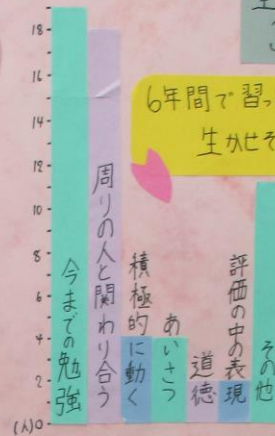 18
16
14
12
10
8
6
4
2
(人)0
6年間で習っ
生かせそ
今までの勉強
周りの人と関わり合う
積極的に動く
あいさつ
道徳
評価の中の表現
その他